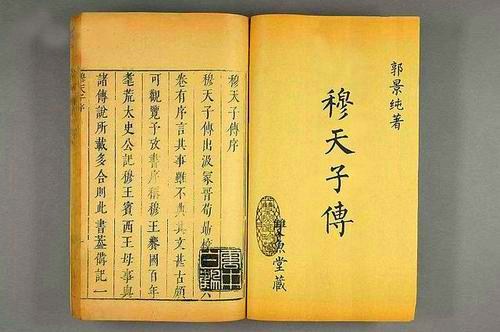 郭景純著
穆天子傳
雙魚堂藏
穆天子傳序
穆天子傳出汲冢晉荀勗校六
卷有序言其事雖不典其文甚古頗
可觀覽予攷書序稱穆王饗國百年
耄荒太史公記穆王賓西王母事與
諸傳說所載多合則此書蓋備記一
穆天子序
雲中白鶴